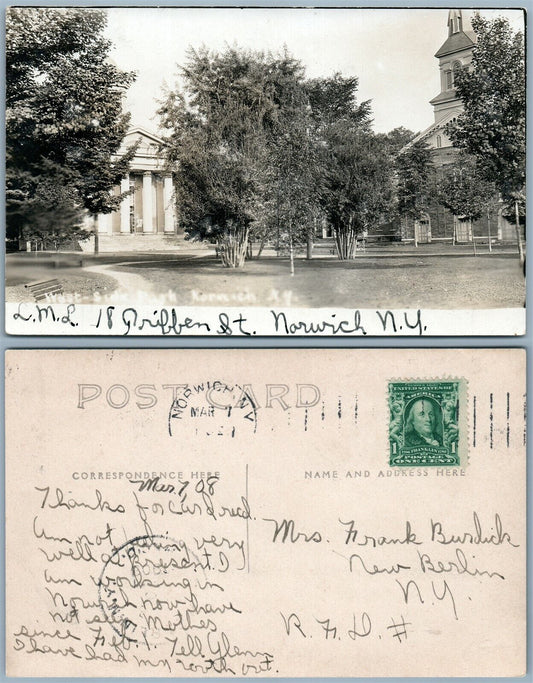 West Side Park Norwich N.Y.
L.M.L. 18 Griffen St. Norwich N.Y.
POST CARD
NORWICH, N.Y.
MAR 7
UNITED STATES OF AMERICA
FRANKLIN
1 POSTAGE 1
ONE CENT
CORRESPONDENCE HERE
NAME AND ADDRESS HERE
Mar 7, 08
Thanks for card recd.
Am not feeling very
well at present. I
am working in
Norwich now have
not seen Mother
since Feb. 1. Tell Glenn
I have had my tooth out.
Mrs. Frank Burdick
New Berlin
N.Y.
R.F.D. #